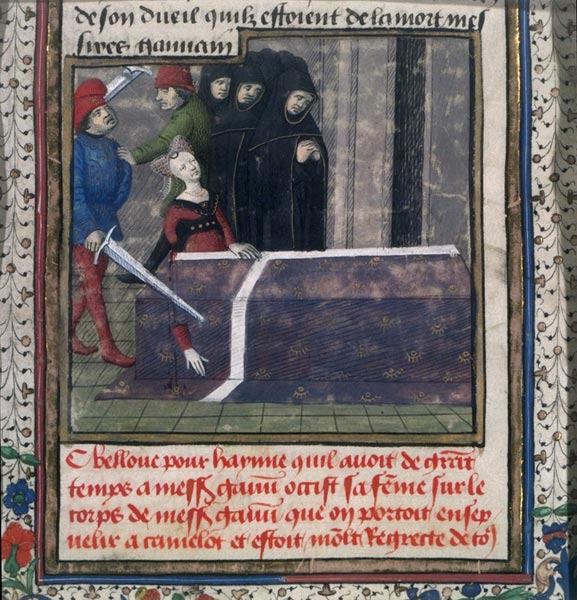 de son dueil quilz estoient de la mort mes
sires Gauuain
C belloue pour hayne quil auoit de grāt
temps a messˢ gauuı occist sa fēme sur le
corps de messˢ gauuı que on portoit ensep
uelir a camelot et estoit mōlt Regrecte de to9